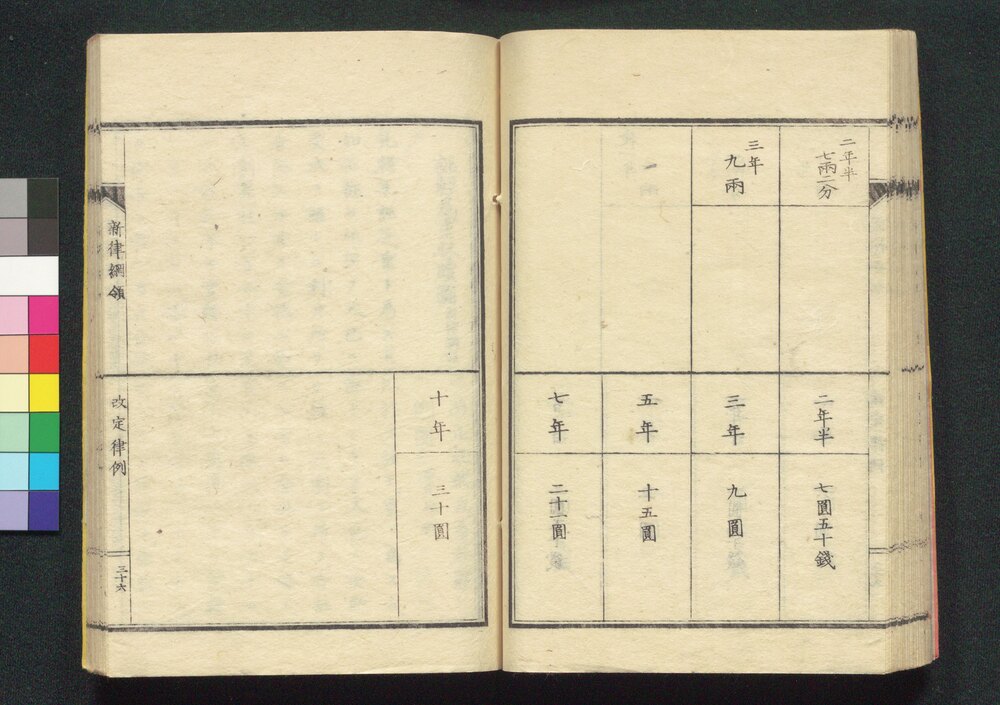 二年半
七兩二分
三年
九兩
二年半
七圓五十錢
三年
九圓
五年
十五圓
七年
二十一圓
十年
三十圓
新律綱領
改定律例
三十六